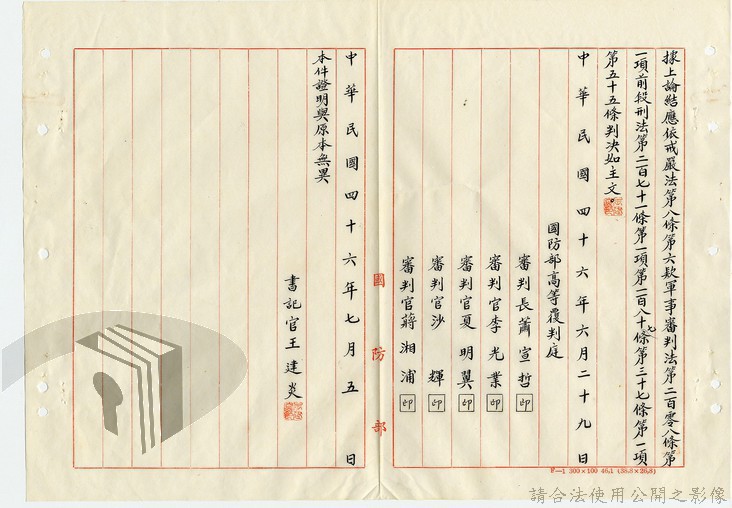 據上論結應依戒嚴法第八條第六款軍事審判法第二百零八條第
一項前段刑法第二百七十一條第一項第一百八十七條第三十七條第一項
第五十五條判決如主文。
中華民國四十六年六月二十九日
國防部高等覆判庭
審判長蕭宣哲印
審判官李光業印
審判官夏明翼印
審判官沙輝印
審判官蔣湘浦印
國防部
中華民國四十六年七月五日
本件證明與原本無異
書記官王建炎
F—1 300×100 46.1 (38.8×26.8)
請合法使用公開之影像